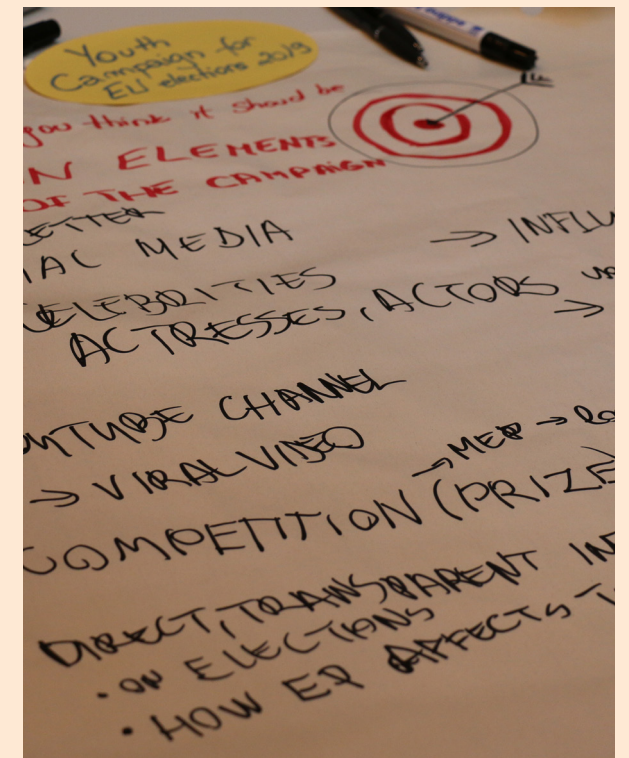 Youth
Campaign for
EU elections 2019
you think it should be
N ELEMENTS
OF THE CAMPAIGN
ETTER
IAC MEDIA → INFLU
CELEBRITIES
ACTRESSES, ACTORS
→
CHANNEL
→ VIRAL VIDEO
→ MEP →
COMPETITION (PRIZE)
DIRECT, TRANSPARENT IN
• ON ELECTIONS
• HOW EP AFFECTS